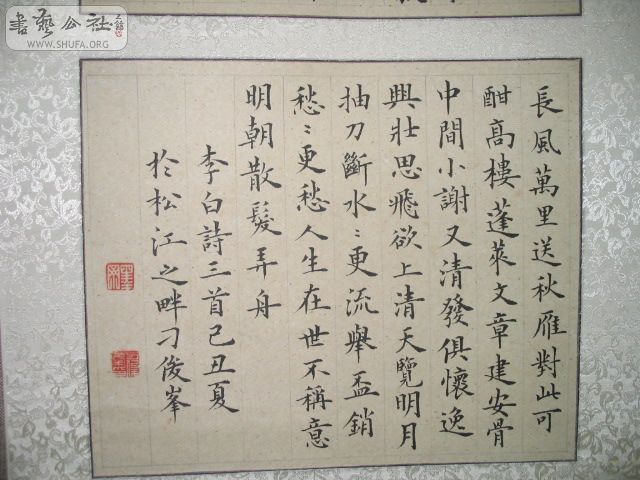 書藝公社
WWW.SHUFA.ORG
長風萬里送秋雁對此可
酣高樓蓬萊文章建安骨
中間小謝又清發俱懷逸
興壯思飛欲上清天覽明月
抽刀斷水〻更流舉盃銷
愁〻更愁人生在世不稱意
明朝散髮弄舟
李白詩三首己丑夏
於松江之畔刁俊峯